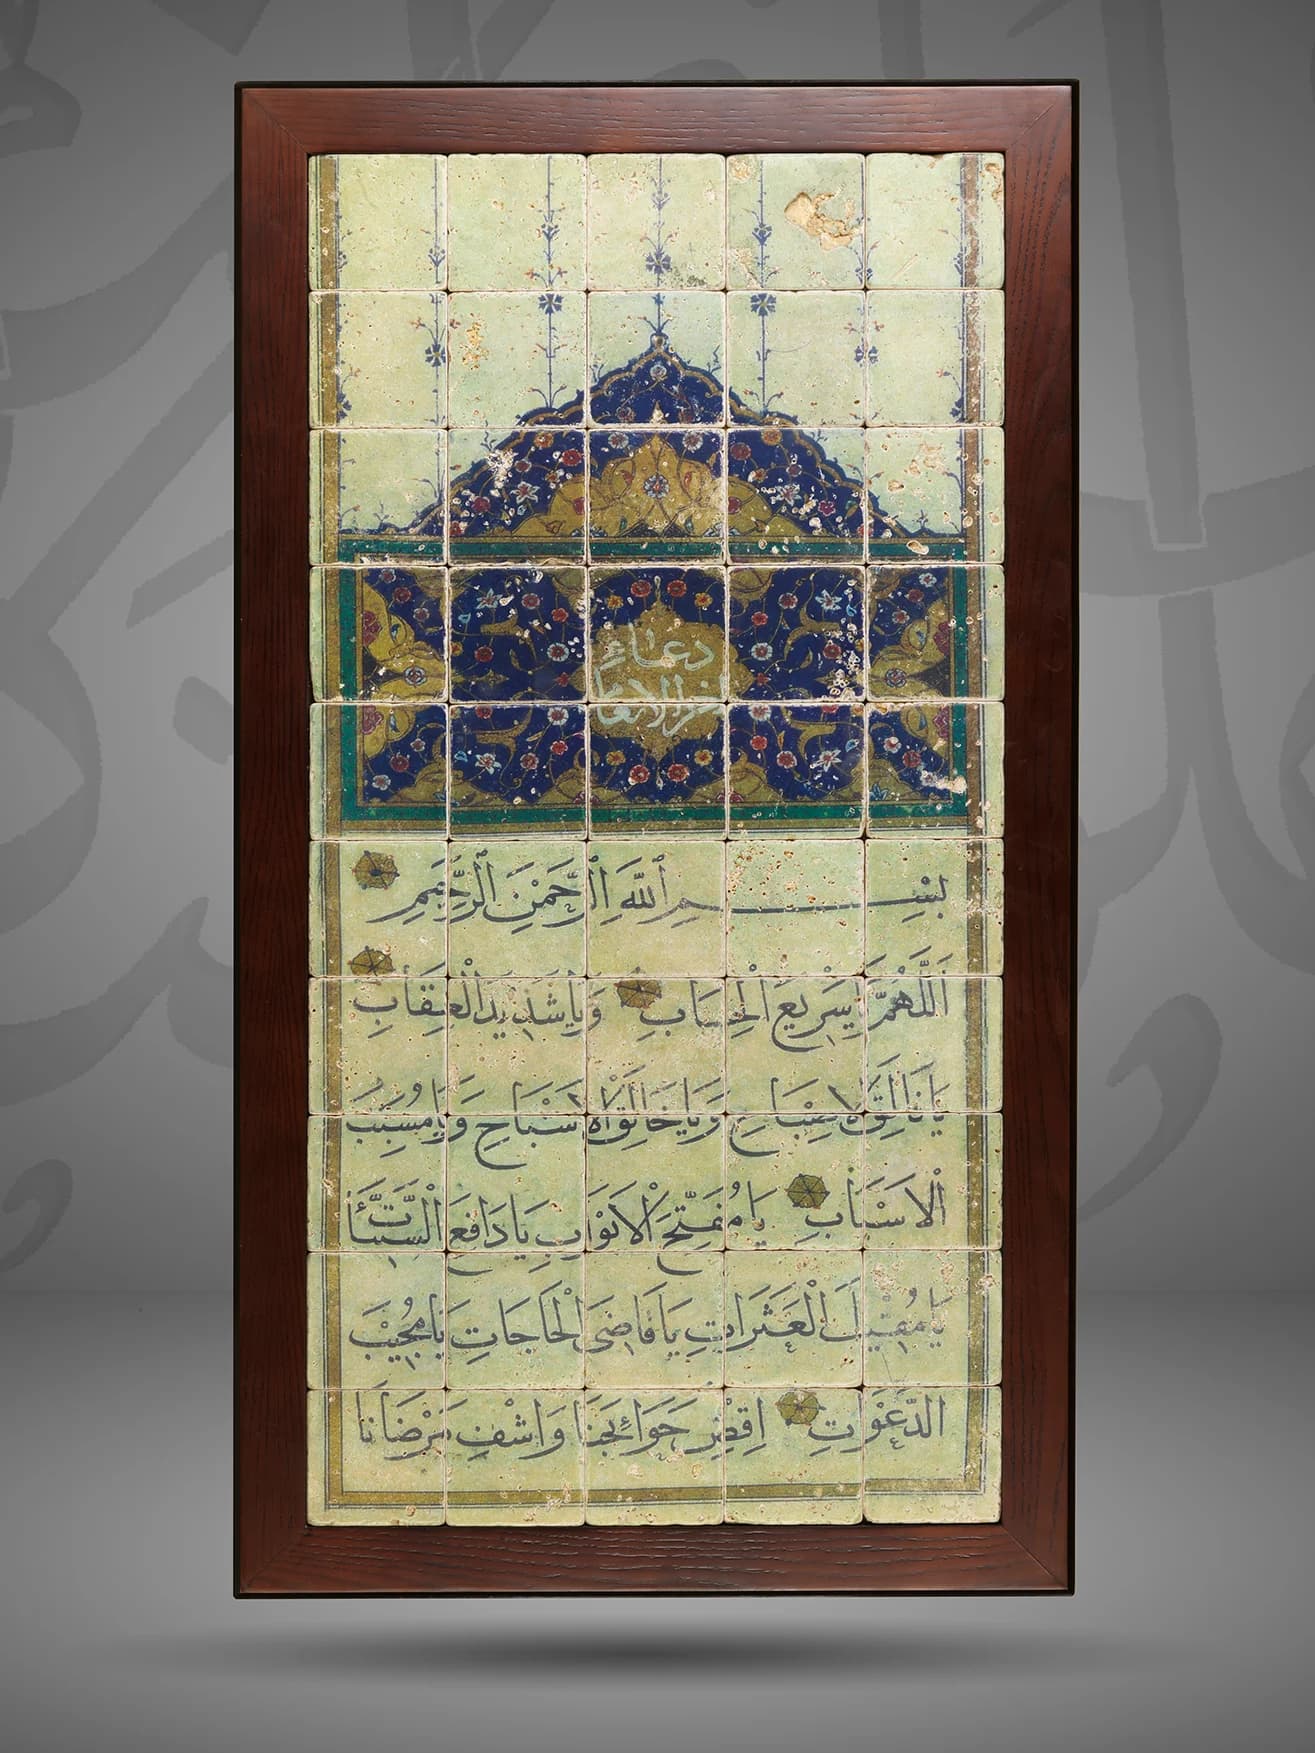 دعاء
اخر الانعام
بِسْمِ ٱللَّهِ ٱلرَّحْمَنِ ٱلرَّحِيمِ
اَللَّهُمَّ يَاسَرِيعَ الْحِسَابِ وَيَاشَدِيدَ الْعِقَابِ
يَا فَالِقَ الْاِصْبَاحِ وَيَاخَالِقَ الْاَشْبَاحِ وَيَا مُسَبِّبَ
الْاَسْبَابِ يَا مُفَتِّحَ الْاَبْوَابِ يَا دَافِعَ السَّيِّئَاتِ
يَا مُقِيلَ الْعَثَرَاتِ يَا قَاضِىَ الْحَاجَاتِ يَا مُجِيبَ
الدَّعَوَاتِ اِقْضِ حَوَائِجَنَا وَاشْفِ مَرْضَانَا